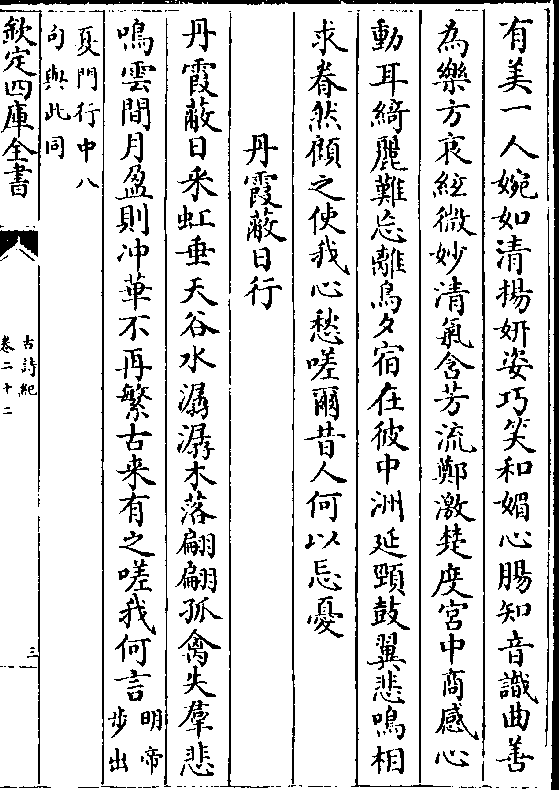 有美一人婉如清揚妍姿巧笑和媚心腸知音識曲善
為樂方哀絃微妙清氣含芳流鄭激楚度宮中商感心
動耳綺麗難忘離鳥夕宿在彼中洲延頸鼓翼悲鳴相
求眷然顧之使我心愁嗟爾昔人何以忘憂
丹霞蔽日行
丹霞蔽日采虹垂天谷水潺潺木落翩翩孤禽失羣悲
鳴雲間月盈則冲華不再繁古来有之嗟我何言
明帝
步出
夏門行中八
句與此同
欽定四庫全書
古詩紀
卷二十二
三